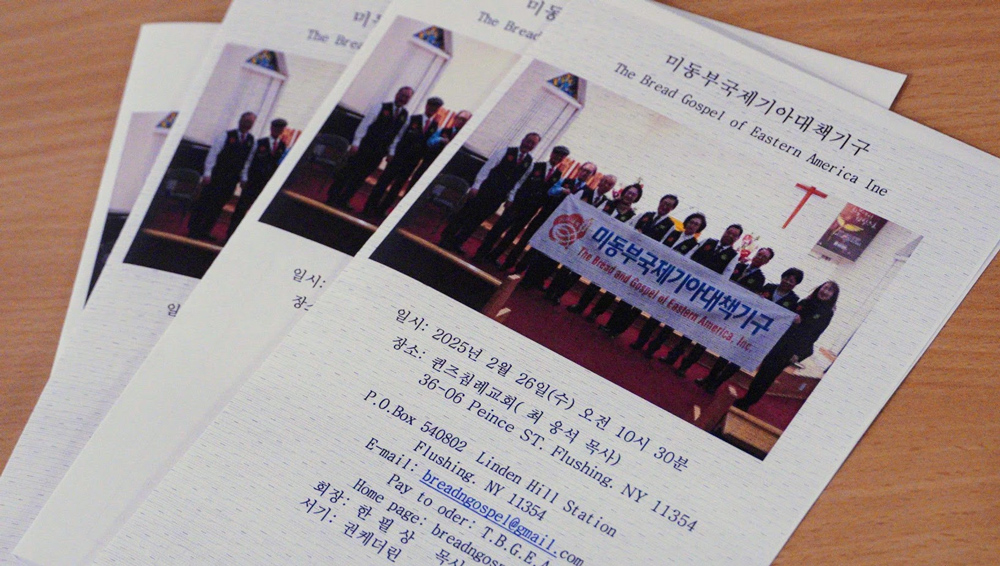 미동부국제기아대책기구
The Bread Gospel of Eastern America Ine
미동부국제기아대책기구
The Bread and Gospel of Eastern America, Inc.
일시: 2025년 2월 26일(수) 오전 10시 30분
장소: 퀸즈침례교회( 최 웅석 목사)
36-06 Peince ST. Flushing, NY 11354
P.O.Box 540802 Linden Hill Station
Flushing, NY 11354
E-mail: breadngospel@gmail.com
Pay to oder: T.B.G.E.A
Home page: breadngosp
회장: 한 필 상 목사
서기: 권케더린
미동
The Bread
일시:
장소
미
The Brea
일